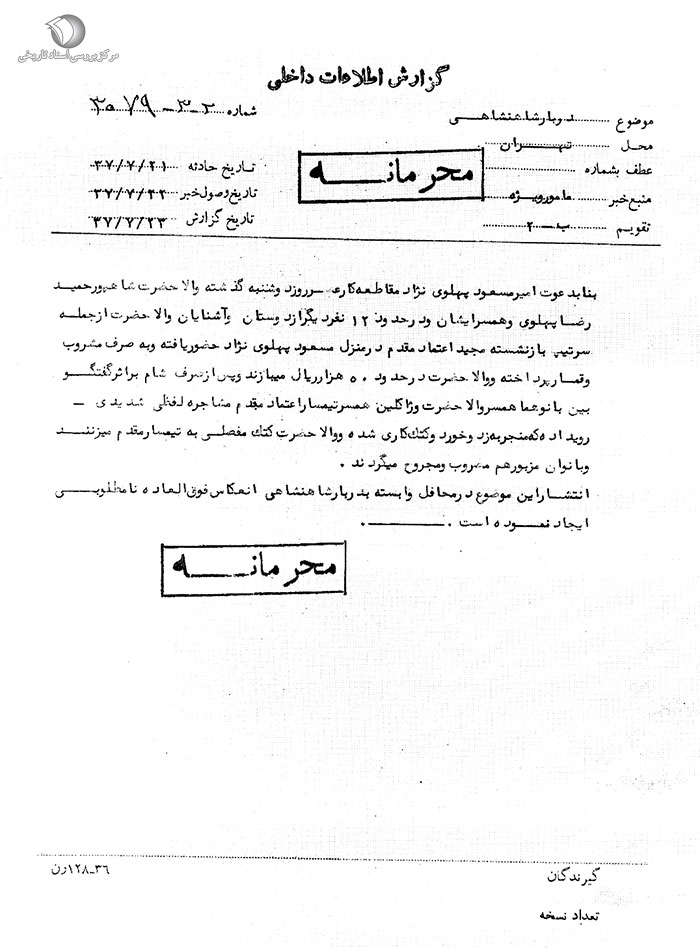 مرکز بررسی اسناد تاریخی
گزارش اطلاعات داخلی
موضوع دربار شاهنشاهی
شماره ۳۰۷۹-۳-۲
محل تهران
عطف بشماره
منبع خبر مامور ویژه
تقویم ب-۲
محرمانه
تاریخ حادثه ۳۷/۷/۲۱
تاریخ وصول خبر ۳۷/۷/۲۲
تاریخ گزارش ۳۷/۷/۲۳
بنابدعوت امیرمسعود پهلوی نژاد مقاطعه‌کار عصر روز دوشنبه گذشته والا حضرت شاهپور حمید
رضا پهلوی و همسر ایشان و در حدود ۱۲ نفر دیگر از دوستان و آشنایان والا حضرت از جمله
سرتیپ بازنشسته مجید اعتماد مقدم در منزل مسعود پهلوی نژاد حضور یافته و به صرف مشروب
و قمار پرداخته و والا حضرت در حدود ۵۰ هزار ریال میبازند و پس از صرف شام بر اثر گفتگو
بین بانو هما همسر والا حضرت و ژاکلین همسر تیمسار اعتماد مقدم مشاجره لفظی شدیدی -
روی داده که منجر به زد و خورد و کتک کاری شده و والا حضرت کتک مفصلی به تیمسار مقدم میزنند
و بانوان مزبور هم مضروب و مجروح میگردند .
انتشار این موضوع در محافل وابسته بدربار شاهنشاهی انعکاس فوق العاده نامطلوبی
ایجاد نموده است .
محرمانه
گیرندگان
۳۶-۱۲۸ رن
تعداد نسخه